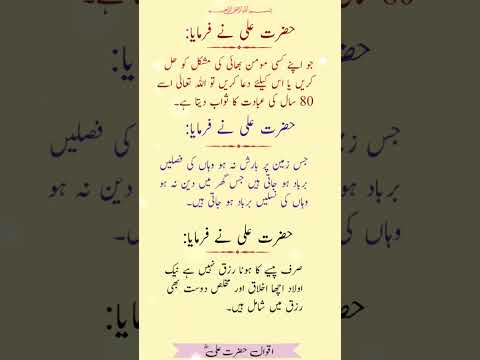 حضرت علی نے فرمایا:
جو اپنے کسی مومن بھائی کی مشکل کو حل
کریں یا اس کیلئے دعا کریں تو اللہ تعالیٰ اسے
80 سال کی عبادت کا ثواب دیتا ہے۔
حضرت علی نے فرمایا:
جس زمین پر بارش نہ ہو وہاں کی فصلیں
برباد ہو جاتی ہیں جس گھر میں دین نہ ہو
وہاں کی نسلیں برباد ہو جاتی ہیں۔
حضرت علی نے فرمایا:
صرف پیسے کا ہونا رزق نہیں ہے نیک
اولاد اچھا اخلاق اور مخلص دوست بھی
رزق میں شامل ہیں۔
اقوال حضرت علیؓ